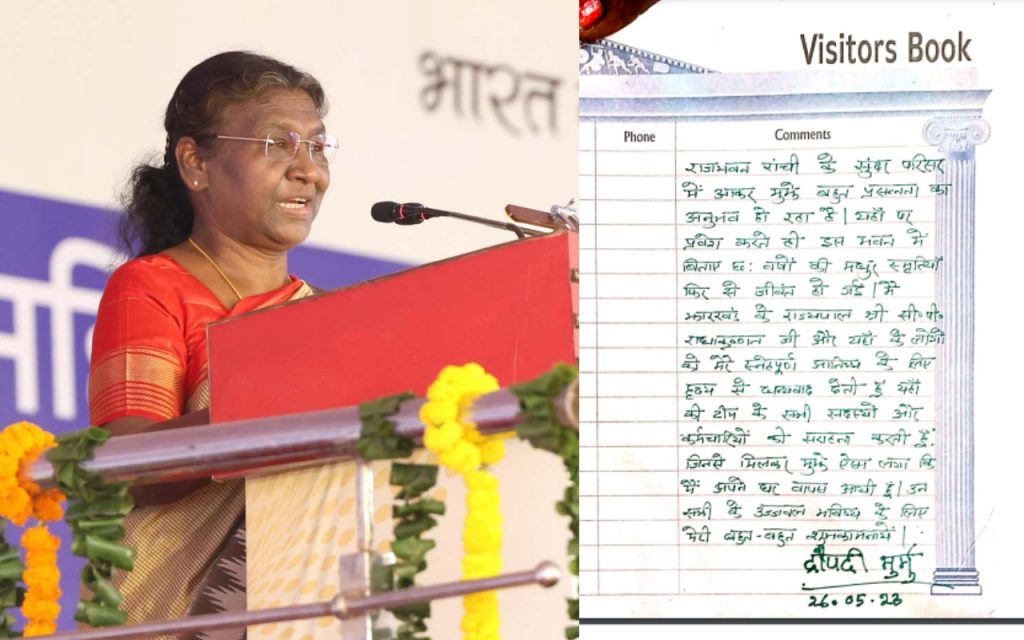 भारत
Visitors Book
Phone
Comments
राजभवन रांची के सुंदर परिसर
में आकर मुझे बहुत प्रसन्नता का
अनुभव हो रहा है। यहाँ पर
प्रवेश करते ही इस भवन में
बिताए छ: वर्षों की मधुर स्मृतियाँ
फिर से जीवंत हो गई। मैं
झारखंड के राज्यपाल श्री सी॰पी॰
राधाकृष्णन जी और यहाँ के लोगों
को मेरे स्नेहपूर्ण आतिथ्य के लिए
हृदय से धन्यवाद देती हूँ यहाँ
की टीम के सभी सदस्यों और
कर्मचारियों की सराहना करती हूँ।
जिनसे मिलकर मुझे ऐसा लगा कि
मैं अपने घर वापस आयी हूँ। उन
सभी के उज्जवल भविष्य के लिए
मेरी बहुत-बहुत शुभकामनायें।
द्रौपदी मुर्मु
26.05.23